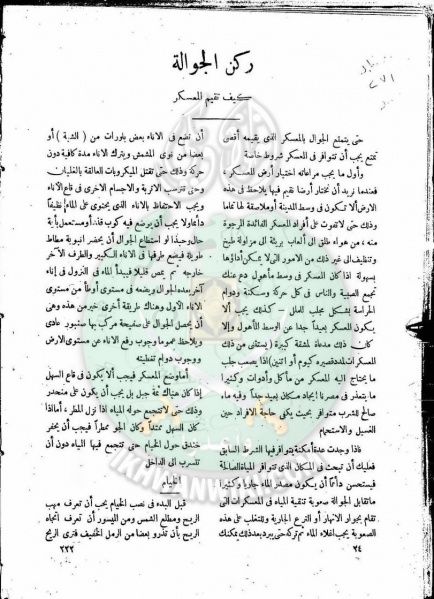 ركن الجوالة
كيف تقيم المعسكر
حتى يتمتع الجوال بالمعسكر الذى يقيمه أقصى
تمتع يجب أن تتوافر فى المعسكر شروط خاصة
وأول ما يجب مراعاته اختيار أرض المعسكر،
فعندما نريد أن نختار أرضا نقيم فيها يلاحظ فى هذه
الارض ألا تكون فى وسط المدينة أو ملاصقة لها تماما
وذلك حتى لا تفوت على أفراد المعسكر الفائدة المرجوة
منه، من هواء طلق الى ألعاب بريئة الى مزاولة طبخ
وتنظيف الى غير ذلك من الامور التى لا يمكن أداؤها
بسهولة اذا كان المعسكر فى وسط مأهول دع عنك
تجمع الصبية والناس فى كل حركة وسكنة ودوام
الحراسة بشكل مجلب الملل. كذلك يجب ألا
يكون المعسكر بعيدا جدا عن الوسط المأهول وإلا
كان ذلك مدعاة لمشقة كبيرة (يستثنى من ذلك
المعسكرات لمدد قصيرة كيوم أو اثنين) اذا يصعب جلب
ما يحتاج اليه المعسكر من مأكل وأدوات وكثيرا
ما يتعذر فى مصر إيجاد مكان بعيد جدا وفيه ماء
صالح للشرب متوافر بحيث يكفى حاجة الافراد حين
الغسيل والاستحمام
فاذا وجدت عدة أمكنة يتوافر فيها الشرط السابق
فعليك أن تبحث فى المكان الذى تتوافر فيه المياة الصالحة
فيستحسن دائما أن يكون مصدر الماء جاريا وكثيرا
ما تقابل الجوالة صعوبة تنقية المياه فى المعسكرات التى
تقام بجوار الانهار أو الترع الجارية وللتغلب على هذه
الصعوبة يجب اغلاء الماء ثم تركه حتى يبرد بعد ذلك يمكنك
أن تضع فى الاناء بعض بلورات من (الشبة) أو
بعضا من نوى المشمش ويترك الاناء مدة كافية دون
حركة وذلك حتى تقتل الميكروبات العالقة بالغليان
وحتى تترسب الاتربة والاجسام الاخرى فى قاع الاناء
ويجب الاحتفاظ بالاناء الذى يحتوى على الماء نظيفا
دائما ولا يجب أن يوضع فيه كوب قذر أو مستعمل بأية
حال وحبذا لو استطاع الجوال أن يحضر انبوبة مطاط
طويلة فيضع طرفها فى الاناء الكبير والطرف الآخر
خارجه ثم يمص قليلا فيبدأ الماء فى النزول فى إناء
آخر بعده الجوال ويضعه فى مستوى أوطأ من مستوى
الاناء الاول وهناك طريقة أخرى خير من هذه وهى
أن يحصل الجوال على صفيحة مركب بها صنبور عادى
ويلاحظ عموما وجوب رفع الاناء عن مستوى الارض
ووجوب دوام تغطيته
أما وضع المعسكر فيجب ألا يكون فى قاع السهل
إذا كان هناك ثمة جبل بل يجب أن يكون على منحدر
وذلك حتى لا تتجمع حوله المياه اذا نزل المطر، أما اذا
كان السهل ممتدا وكان الجو ممطرا فيجب أن يحفر
خندق حول الخيام حتى تتجمع فيها المياه دون أن
تتسرب الى الداخل
الخيام
قبل البدء فى نصب الخيام يجب أن تعرف مهب
الريح ومطلع الشمس ومن الميسور أن تعرف اتجاه
الريح بأن تذرو بعضا من الرمل الخفيف فترى الريح
٢٤
٢٢٢